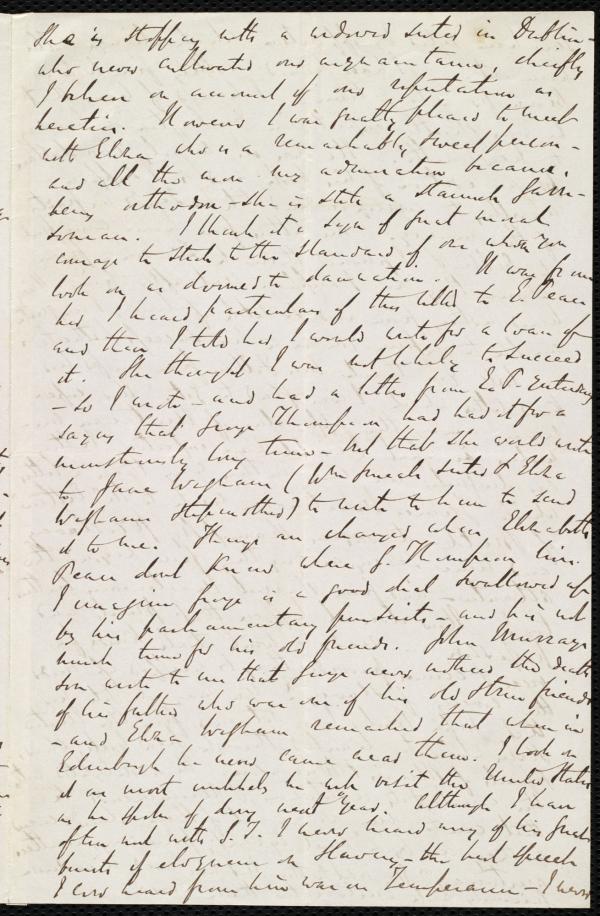 She is stopping with a widowed sister in Dublin -
who never cultivated our acquaintance, chiefly
I believe on account of our reputation as
heretics. However I was greatly pleased to meet
with Eliza who is a remarkably sweet person -
and all the more my admiration because,
being orthodox - she is still a staunch Garri-
sonian. I think it a sign of great moral
courage to stick to the standard of one whom you
look on as doomed to damnation. It was from
her I heard particulars of this letter to E. Pease
and then I told her I would write for a loan of
it. She thought I was not likely to succeed
- so I wrote - and had a letter from E. P. yesterday
saying that George Thompson had had it for a
monstrously long time - but that she would write
to Jane Wigham (Wm Smeal's sister & Eliza
Wigham's stepmother) to write to him to send
it to me. Things are changed when Elizabeth
Pease don't know where G. Thompson lives.
I imagine George is a good deal swallowed up
by his parliamentary pursuits - and has not
much time for his old friends. John Murray's
son wrote to me that George never noticed the death
of his father who was one of his old friends
- and Eliza Wigham remarked that when in
Edinburgh he never came near them. I look on
it as most unlikely he will visit the United States
as he spoke of doing next year. Although I have
often met with G. T. I never heard any of his great
bursts of eloquence on Slavery - the best speech
I ever heard from him was on Temperance - I never